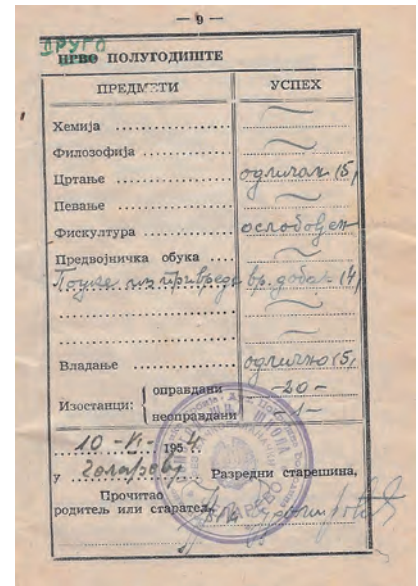 — 9 —
ДРУГО
ПРВО ПОЛУГОДИШТЕ
ПРЕДМЕТИ УСПЕХ
Хемија
Филозофија
Цртање одличан (5)
Певање
Фискултура ослобођен
Предвојничка обука
Поуке из привреде вр. добар (4)
Владање одлично (5)
Изостанци: оправдани -20-
неоправдани -1-
10 - VI - 1954
у Челареву Разредни старешина,
Прочитао
родитељ или старатељ